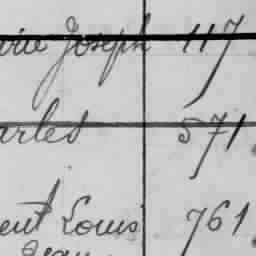 Joseph 117
arles 571.
ent Louis 761.
Jean